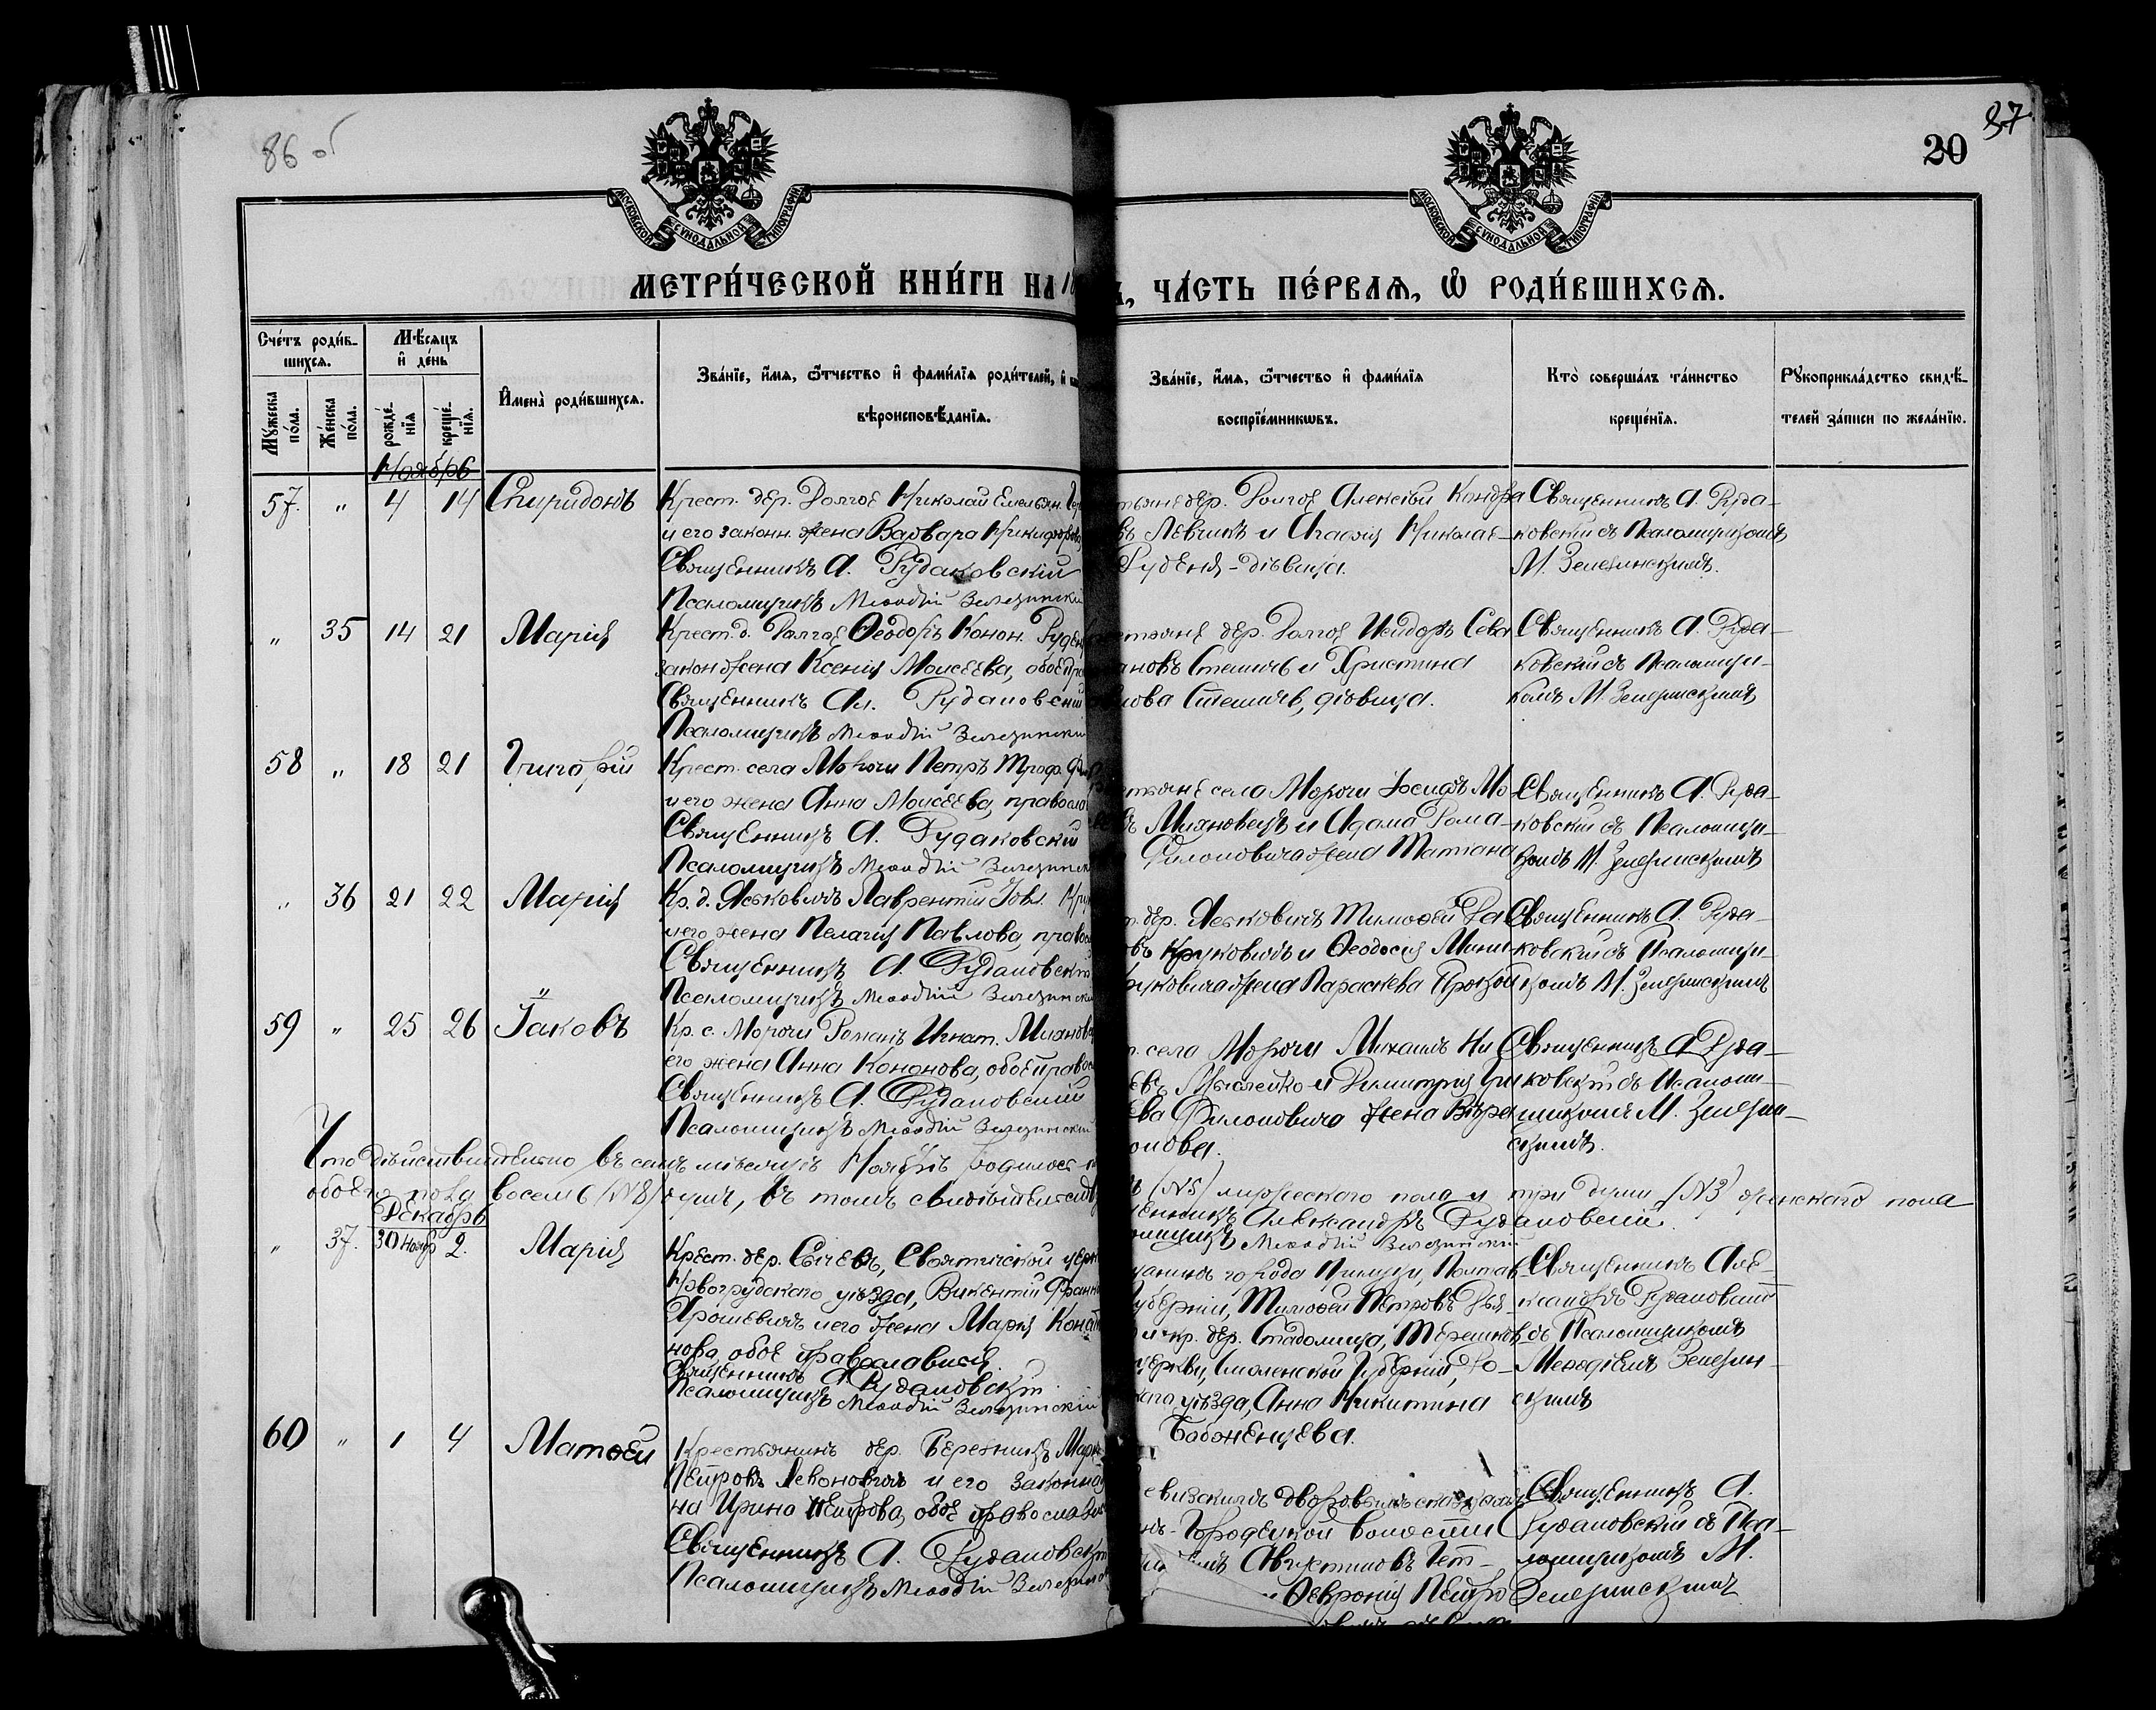 86 об
87
20
МОСКОВСКОЙ СѴНОДАЛЬНОЙ ТИПОГРАФІИ
МОСКОВСКОЙ СѴНОДАЛЬНОЙ ТИПОГРАФІИ
МЕТРИ́ЧЕСКОЙ КНИ́ГИ НА 18
, ЧА́СТЬ ПЕ́РВАѦ, Ѡ РОДИ́ВШИХСѦ.
Счéтъ роди́в-
шихся.
Мѣ́сяцъ
и҆ дéнь
Мꙋ́жеска пóла.
Жéнска пóла.
рождé-
нїѧ
крещé-
нїѧ.
И҆менà роди́вшихся.
Звáнїе, и҆́мѧ, ѻ҆́тчество и҆ фами́лїѧ роди́телей, и҆
вѣроисповѣ́данїѧ.
Звáнїе, и҆́мѧ, ѻ҆́тчество и҆ фами́лїѧ
воспрїе́мникѡвъ.
Ктò совершáлъ тáинство
крещéнїѧ.
Рꙋкоприклáдство свидѣ́-
телей зáписи по желáнїю.
Ноябрь
57. " 4 14 Спиридонъ
Крест. дер. Долгое Николай Емельян.
и его законн. жена Варвара Никифорова
Священникъ А. Рудаковскій
Псаломщикъ Меѳодій Зелезинскій
тьяне дер. Долгое Алексѣй Кондра
въ Левчикъ и Агафія Николае-
Руденя-дѣвица.
Священникъ А. Руда-
ковскій съ Псаломщикомъ
М. Зелезинскимъ.
" 35 14 21 Марія
Крест. д. Долгое Ѳеодоръ Конон. Руден
закон. жена Ксенія Моисеева, обое пра
Священникъ Ал. Рудаковскій
Псаломщикъ Меѳодій Зелезинскій
тьяне дер. Долгое Исидоръ Сева
ановъ Стешичъ и Христина
нова Стешичъ, дѣвица.
Священникъ А. Руда-
ковскій съ Псаломщи-
комъ М. Зелезинскимъ
58 " 18 21 Григорій
Крест. села Морочи Петръ Троф.
и его жена Анна Моисеева, правосла
Священникъ А. Рудаковскій
Псаломщикъ Меѳодій Зелезинск
тьяне села Морочи Іосифъ Мо
въ Михновецъ и Адама Рома-
Филоповича жена Татіана
Священникъ А. Руда-
ковскій съ Псаломщи-
комъ М. Зелезинскимъ
" 36 21 22 Марія
Кр. д. Яськовичъ Лаврентій Іовл. Кру
и его жена Пелагія Павлова правос
Священникъ А. Рудаковскій
Псаломщикъ Меѳодій Зелезинскій
т. дер. Яськовичъ Тимоѳей
овъ Круковичъ и Ѳеодосія
руковича жена Параскева Прокоп
Священникъ А. Руда-
ковскій съ Псаломщи-
комъ М. Зелезинскимъ
59 " 25 26 Іаковъ
Кр. с. Морочи Романъ Игнат. Михнове
его жена Анна Кононова, обое правос
Священникъ А. Рудаковскій
Псаломщикъ Меѳодій Зелезинскій
т. села Морочи Михаилъ Ни
евъ и Димитрія Гри
ева Филоповича жена Вѣра
онова.
Священникъ А. Руда-
ковскій съ Псалом-
щикомъ М. Зелезин-
скимъ.
Что дѣйствительно въ семъ мѣсяцѣ Ноябрѣ родилось
обоего пола восемь (№8) душъ, въ томъ свидѣтельств
ь (№5) мужескаго пола и три души (№3) женскаго пола
щенникъ Александръ Рудаковскій.
омщикъ Меѳодій Зелезинскій
Декабрь
" 37. 30 Нояб 2. Марія
Крест. дер. Сычевъ, Святической церк
Новогрудскаго уѣзда, Викентій Франц
Ярошевичъ и его жена Марія Конст
нова, обое православныя.
Священникъ А Рудаковскій
Псаломщикъ Меѳодій Зелезинскій
щанинъ города Прилуки, Полтав
губерніи, Тимоѳей Петровъ
и кр. дер. Стадолища, Терешков
церкви, Смоленской Губерніи, Ро-
каго уѣзда, Анна Никитина
Баженцева.
Священникъ Але-
ксандръ Рудаковскій
съ Псаломщикомъ
Меѳодіемъ Зелезин-
скимъ
60 " 1 4 Матѳей
Крестьянинъ дер. Бережницъ Марк
Петровъ Левоновичъ и его законная
на Ирина Петрова, обое православн
Священникъ А. Рудаковскій
Псаломщикъ Меѳодій Зелезинск
нъ-Городецкой волости
Августиновъ Гет-
Ѳевронія Петро
Священникъ А.
Рудаковскій съ Пса-
ломщикомъ М.
Зелезинскимъ